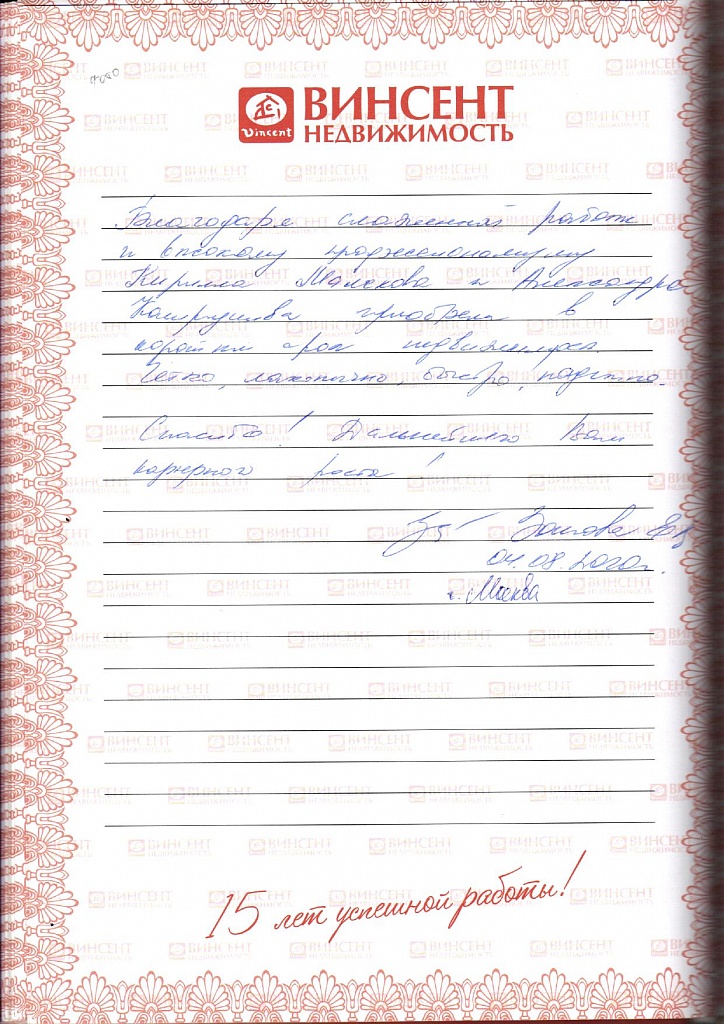 ВИНСЕНТ
НЕДВИЖИМОСТЬ
Vincent
Благодаря слаженной работе
и высокому профессионализму
Кирилла и Александра
приобрела в
короткий срок недвижимость.
Четко, лаконично, быстро, надежно.
Спасибо! Дальнейшего Вам
карьерного роста!
04.08.2020г.
г. Москва
15 лет успешной работы!